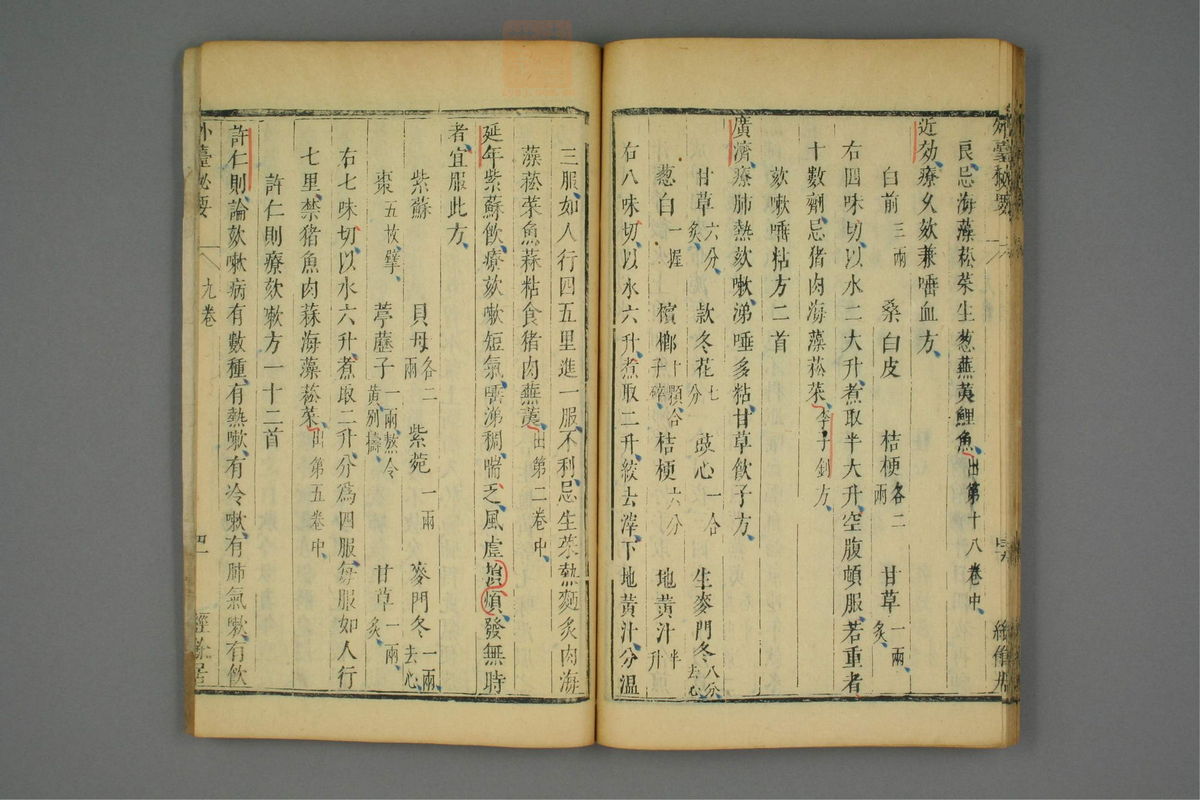 外臺秘要
良忌海藻菘菜生葱蕪荑鯉魚出第十八卷中
近効療久欬兼唾血方
白前三兩 桑白皮 桔梗各二兩 甘草一兩炙
右四味切以水二大升煮取半大升空腹頓服若重者
十數劑忌猪肉海藻菘菜李子釗方
欬嗽唾粘方二首
廣濟療肺熱欬嗽涕唾多粘甘草飲子方
甘草六分炙 款冬花七分 豉心一合 生麥門冬八分去心
葱白一握 檳榔十顆合子碎 桔梗六分 地黃汁半升
右八味切以水六升煮取二升絞去滓下地黃汁分溫
三服如人行四五里進一服不利忌生菜熱麵炙肉海
藻菘菜魚蒜粘食猪肉蕪荑出第二卷中
延年紫蘇飲療欬嗽短氣唾涕稠喘乏風虛損煩發無時
者宜服此方
紫蘇 貝母各二兩 紫菀一兩 麥門冬一兩去心
棗五枚擘 葶藶子一兩熬令黃別擣 甘草一兩炙
右七味切以水六升煮取二升分為四服每服如人行
七里禁猪魚肉蒜海藻菘菜出第五卷中
許仁則療欬嗽方一十二首
許仁則論欬嗽病有數種有熱嗽有冷嗽有肺氣嗽有飲
外臺秘要
九卷
經餘居